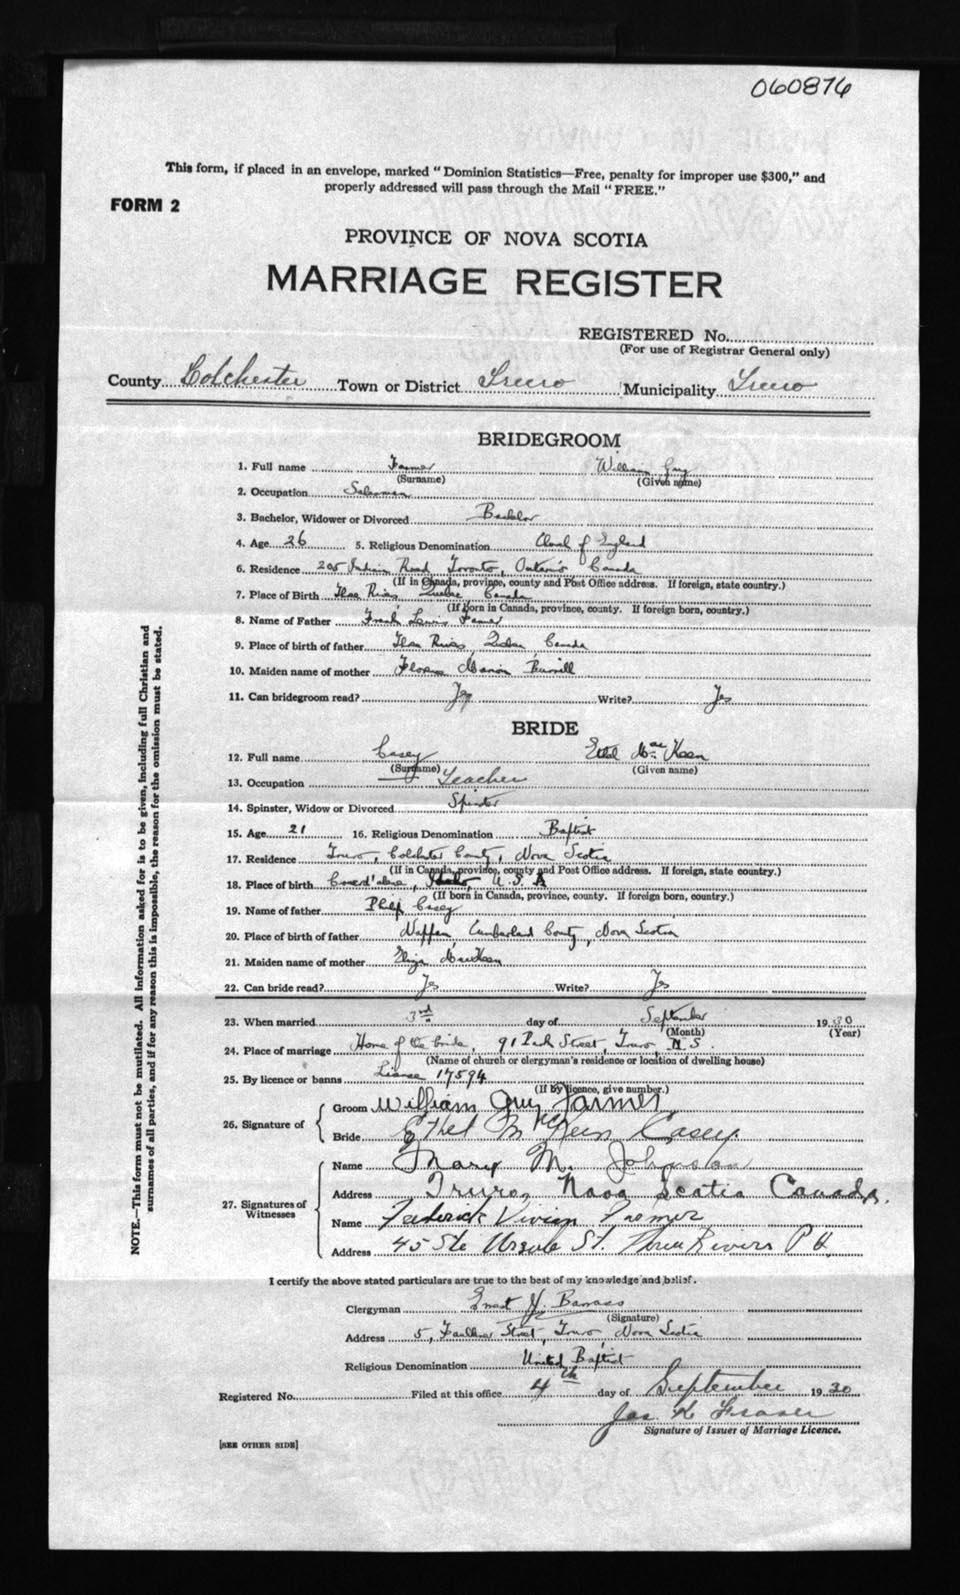 060876
This form, if placed in an envelope, marked "Dominion Statistics—Free, penalty for improper use $300," and
properly addressed will pass through the Mail "FREE."
FORM 2
PROVINCE OF NOVA SCOTIA
MARRIAGE REGISTER
REGISTERED No.
(For use of Registrar General only)
County Colchester Town or District Truro Municipality Truro
BRIDEGROOM
1. Full name Farmer William Guy
(Surname) (Given name)
2. Occupation Salesman
3. Bachelor, Widower or Divorced Bachelor
4. Age 26 5. Religious Denomination Church of England
6. Residence 205 Indian Road Toronto, Ontario Canada
(If in Canada, province, county and Post Office address. If foreign, state country.)
7. Place of Birth Three Rivers Quebec Canada
(If born in Canada, province, county. If foreign born, country.)
8. Name of Father Frank Lewis Farmer
9. Place of birth of father Three Rivers, Quebec, Canada
10. Maiden name of mother Florence Marion Burrill
11. Can bridegroom read? Yes Write? Yes
BRIDE
12. Full name Casey Ethel MacKeen
(Surname) (Given name)
13. Occupation Teacher
14. Spinster, Widow or Divorced Spinster
15. Age 21 16. Religious Denomination Baptist
17. Residence Truro, Colchester County, Nova Scotia
(If in Canada, province, county and Post Office address. If foreign, state country.)
18. Place of birth Coeur d'alene, Idaho, U.S.A
(If born in Canada, province, county. If foreign born, country.)
19. Name of father Philip Casey
20. Place of birth of father Nappan, Cumberland County, Nova Scotia
21. Maiden name of mother Eliza MacKeen
22. Can bride read? Yes Write? Yes
23. When married 3rd day of September 1930
(Month) (Year)
24. Place of marriage Home of the bride, 91 Park Street, Truro N.S.
(Name of church or clergyman's residence or location of dwelling house)
25. By licence or banns License 17594
(If by licence, give number.)
26. Signature of Groom William Guy Farmer
Bride Ethel McKeen Casey.
27. Signatures of Witnesses Name Mary M. Johnson
Address Truro, Nova Scotia Canada.
Name Frederick Vivian Farmer
Address 45 Ste Ursule St. Three Rivers P Q.
I certify the above stated particulars are true to the best of my knowledge and belief.
Clergyman Ernest J. Barrass
(Signature)
Address 5, Faulkner Street, Truro, Nova Scotia
Religious Denomination United Baptist
Registered No. Filed at this office 4th day of September 1930
Jas K Fraser
Signature of Issuer of Marriage Licence.
[SEE OTHER SIDE]
NOTE.—This form must not be mutilated. All information asked for is to be given, including full Christian and
surnames of all parties, and if for any reason this is impossible, the reason for the omission must be stated.